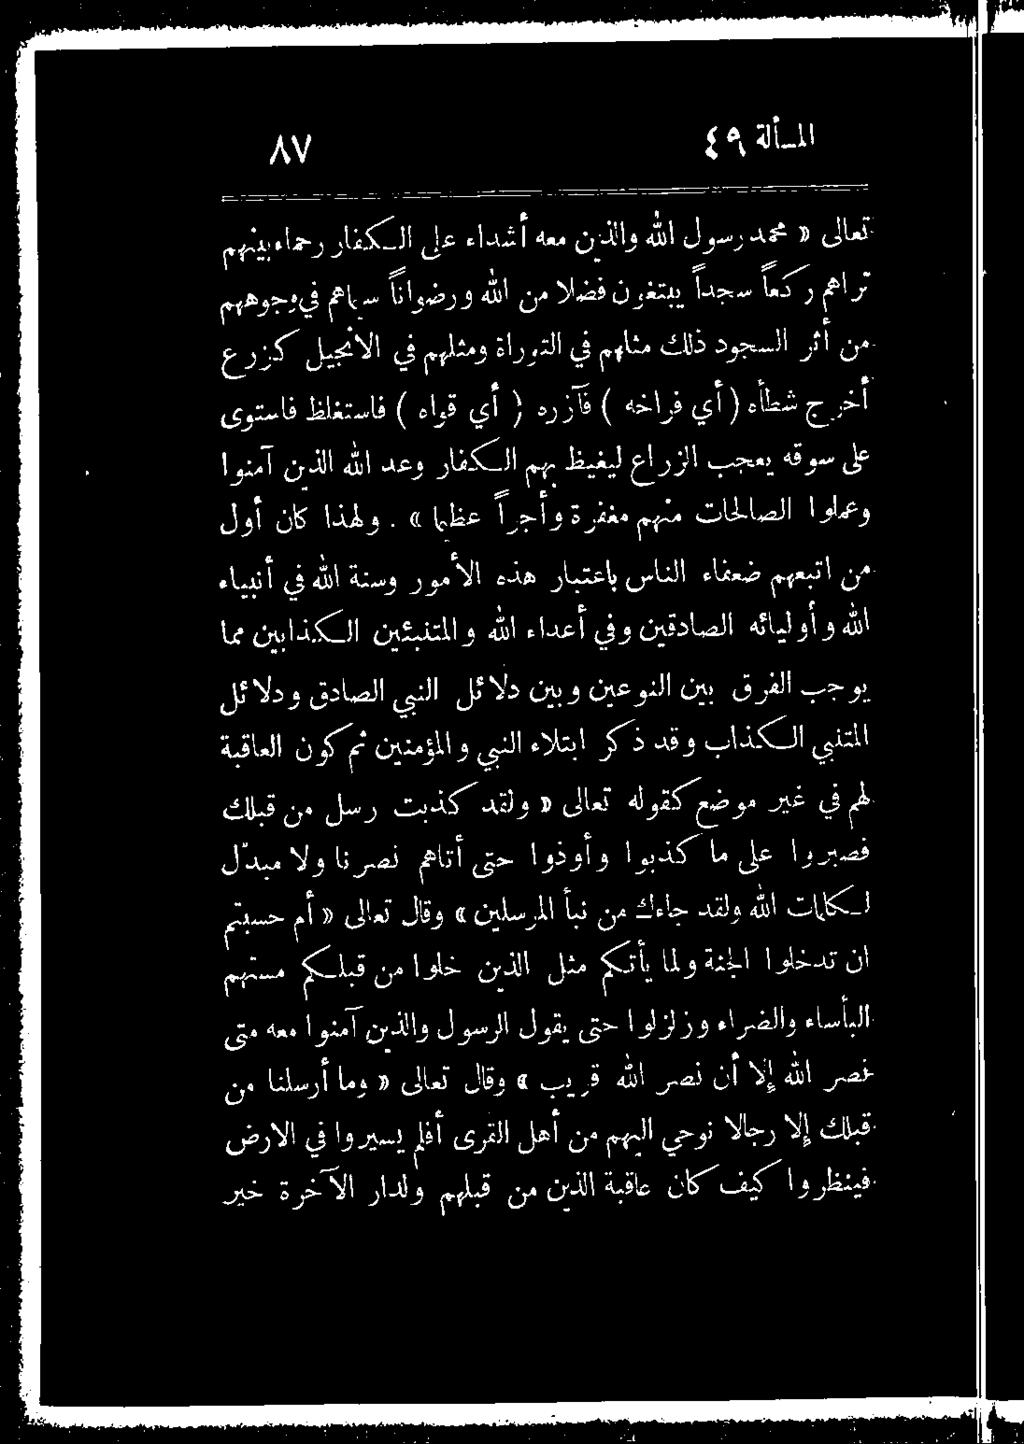 المسألة ٤٩ ٨٧
تعالى « محمد رسول الله والذين معه أشداء على الكفار رحماء بينهم
تراهم ركعاً سجداً يبتغون فضلا من الله ورضواناً سيماهم في وجوههم
من أثر السجود ذلك مثلهم في التوراة ومثلهم في الانجيل كزرع
أخرج شطأه ( أي فراخه ) فآزره ( أي قواه ) فاستغلظ فاستوى
على سوقه يعجب الزراع ليغيظ بهم الكفار وعد الله الذين آمنوا
وعملوا الصالحات منهم مغفرة وأجراً عظيما » . ولهذا كان أول
من اتبعهم ضعفاء الناس باعتبار هذه الأمور وسنة الله في أنبياء
الله وأوليائه الصادقين وفي أعداء الله والمتنبئين الكذابين مما
يوجب الفرق بين النوعين وبين دلائل النبي الصادق ودلائل
المتنبي الكذاب وقد ذكر ابتلاء النبي والمؤمنين ثم كون العاقبة
لهم في غير موضع كقوله تعالى « ولقد كذبت رسل من قبلك
فصبروا على ما كذبوا وأوذوا حتى أتاهم نصرنا ولا مبدّل
لكلمات الله ولقد جاءك من نبأ المرسلين » وقال تعالى « أم حسبتم
ان تدخلوا الجنة ولما يأتكم مثل الذين خلوا من قبلكم مستهم
البأساء والضراء وزلزلوا حتى يقول الرسول والذين آمنوا معه متى
نصر الله إلا أن نصر الله قريب » وقال تعالى « وما أرسلنا من
قبلك إلا رجالا نوحي اليهم من أهل القرى أفلم يسيروا في الارض
فينظروا كيف كان عاقبة الذين من قبلهم ولدار الآخرة خير